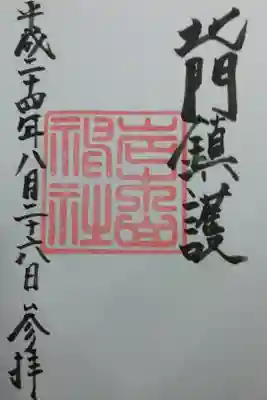 北門鎮護
岩木山
神社
平成二十四年八月二十六日参拝